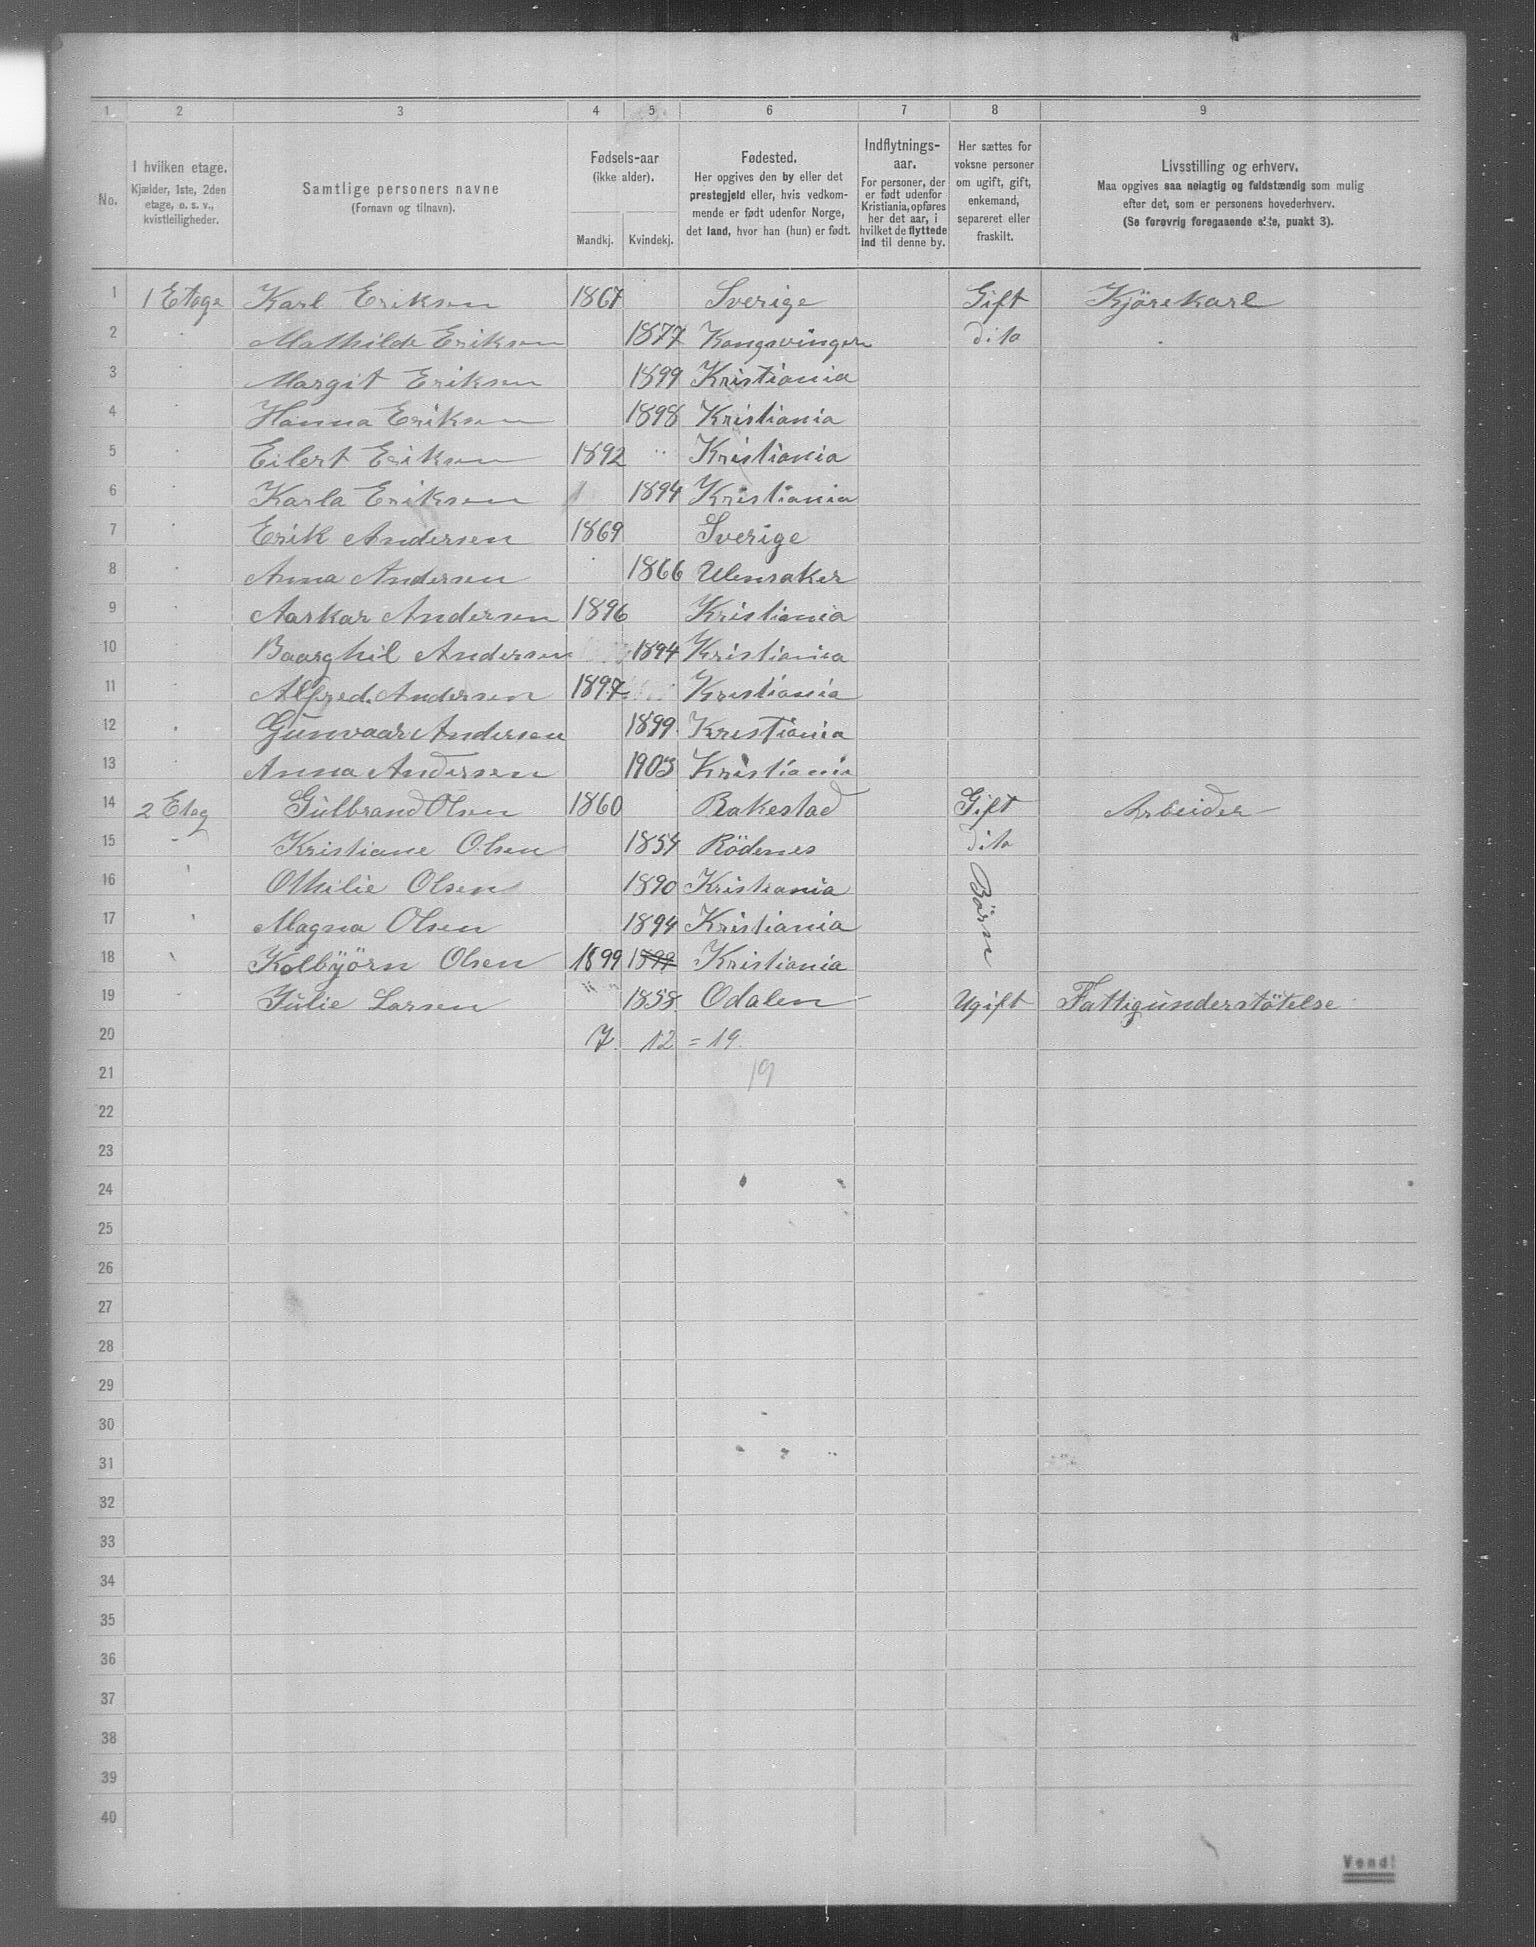 1 2 3 4 5 6 7 8 9
No. I hvilken etage. Kjælder, 1ste, 2den etage, o. s. v., kvistleiligheder. Samtlige personers navne (Fornavn og tilnavn). Fødsels-aar (ikke alder). Mandkj. Kvindekj. Fødested. Her opgives den by eller det prestegjeld eller, hvis vedkommende er født udenfor Norge, det land, hvor han (hun) er født. Indflytnings-aar. For personer, der er født udenfor Kristiania, opføres her det aar, i hvilket de flyttede ind til denne by. Her sættes for voksne personer om ugift, gift, enkemand, separeret eller fraskilt. Livsstilling og erhverv. Maa opgives saa nøiagtig og fuldstændig som mulig efter det, som er personens hovederhverv. (Se forøvrig foregaaende side, punkt 3).
1 1 Etage Karl Eriksen 1867 Sverige Gift Kjørekarl
2 Mathilde Eriksen 1877 Kongsvinger dito
3 Margit Eriksen 1899 Kristiania
4 Hanna Eriksen 1898 Kristiania
5 Eilert Eriksen 1892 Kristiania
6 Karla Eriksen 1894 Kristiania
7 Erik Andersen 1869 Sverige
8 Anna Andersen 1866 Ulensaker
9 Aarkar Andersen 1896 Kristiania
10 Baarghil Andersen 1894 Kristiania
11 Alfred Andersen 1897 Kristiania
12 Gunvaar Andersen 1899 Kristiania
13 Anna Andersen 1903 Kristiania
14 2 Etag Gulbrand Olsen 1860 Rakestad Gift Arbeider
15 Kristiane Olsen 1854 Rödenes dito
16 Othilie Olsen 1890 Kristiania Börn
17 Magna Olsen 1894 Kristiania
18 Kolbjörn Olsen 1899 1899 Kristiania
19 Julie Larsen 1858 Odalen Ugift Fattigunderstötelse
20 7 12 = 19
21 19
22
23
24
25
26
27
28
29
30
31
32
33
34
35
36
37
38
39
40
Vend!